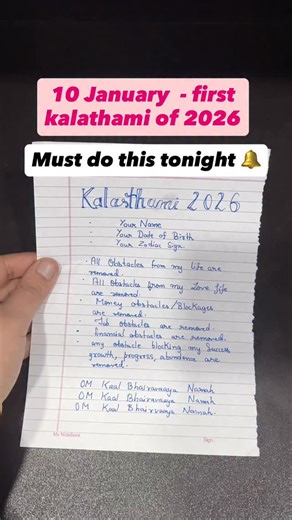 10 January - first
kalathami of 2026
Must do this tonight 🔔
Kalasthami 2026
- Your Name
- Your Date of Birth
- Your Zodiac Sign.
- All Obstacles from my life are
removed.
- All Obstacles from my Love life
are removed
- Money obstacles/Blockages
are removed.
- Job obstacles are removed
- financial obstacles are removed.
- any obstacle blocking my success
growth, progress, abundance are
removed.
OM Kaal Bhairavaaya Namah
OM Kaal Bhairavaaya Namah
OM Kaal Bhairavaaya Namah.